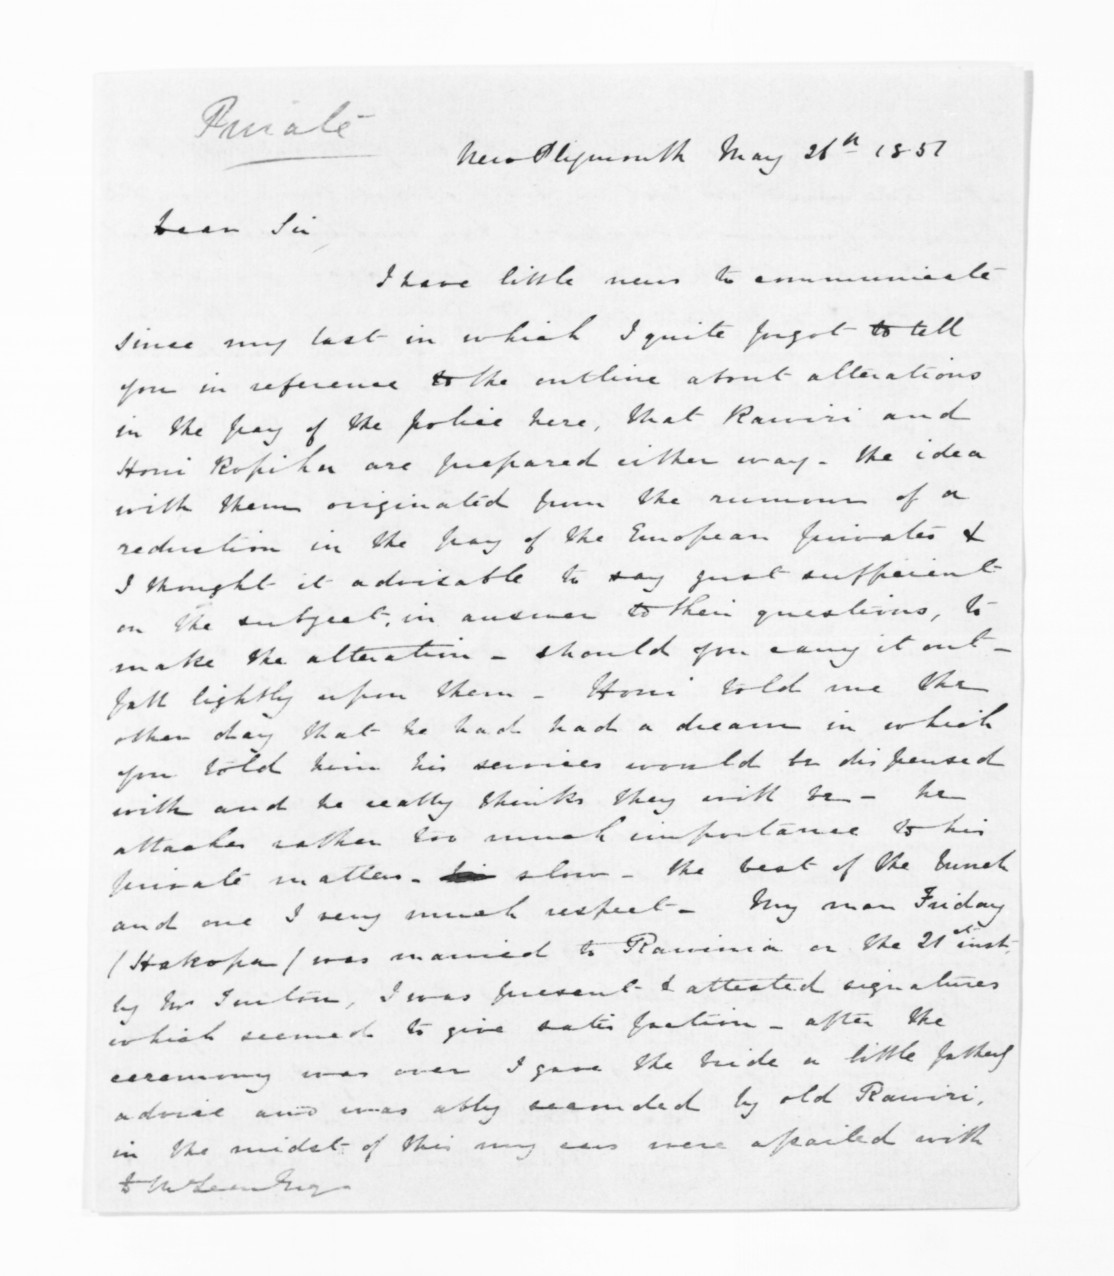 Private
New Plymouth May 26th 1851
Dear Sir,
I have little news to communicate
since my last in which I quite forgot to tell
you in reference to the outline about alterations
in the pay of the police here, that Rawiri and
Honi Ropiha are prepared either way - the idea
with them originated from the rumour of a
reduction in the pay of the European privates &
I thought it advisable to say just sufficient
on the subject, in answer to their questions, to
make the alteration - should you carry it out -
fall lightly upon them - Honi told me the
other day that he had had a dream in which
you told him his services would be dispensed
with and he really thinks they will be - he
attaches rather too much importance to his
private matters - slow - the best of the bunch
and one I very much respect - My man Friday
(Hakopa) was married to Rawinia on the 21st inst,
by Mr Turton, I was present & attested signatures
which seemed to give satisfaction - after the
ceremony was over I gave the bride a little fatherly
advice and was ably seconded by old Rawiri,
in the midst of this my ears were assailed with
D McLean Esq